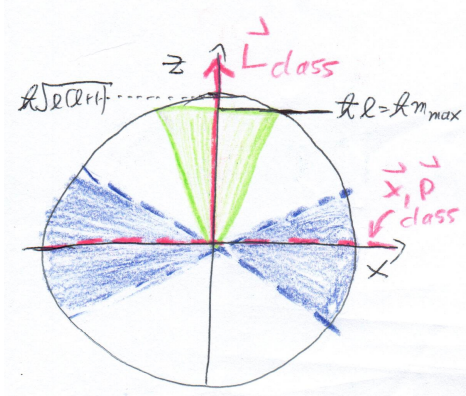 z
L⃗ class
ħ√l(l+1)
ħl=ħm max
x⃗, p⃗
class
x